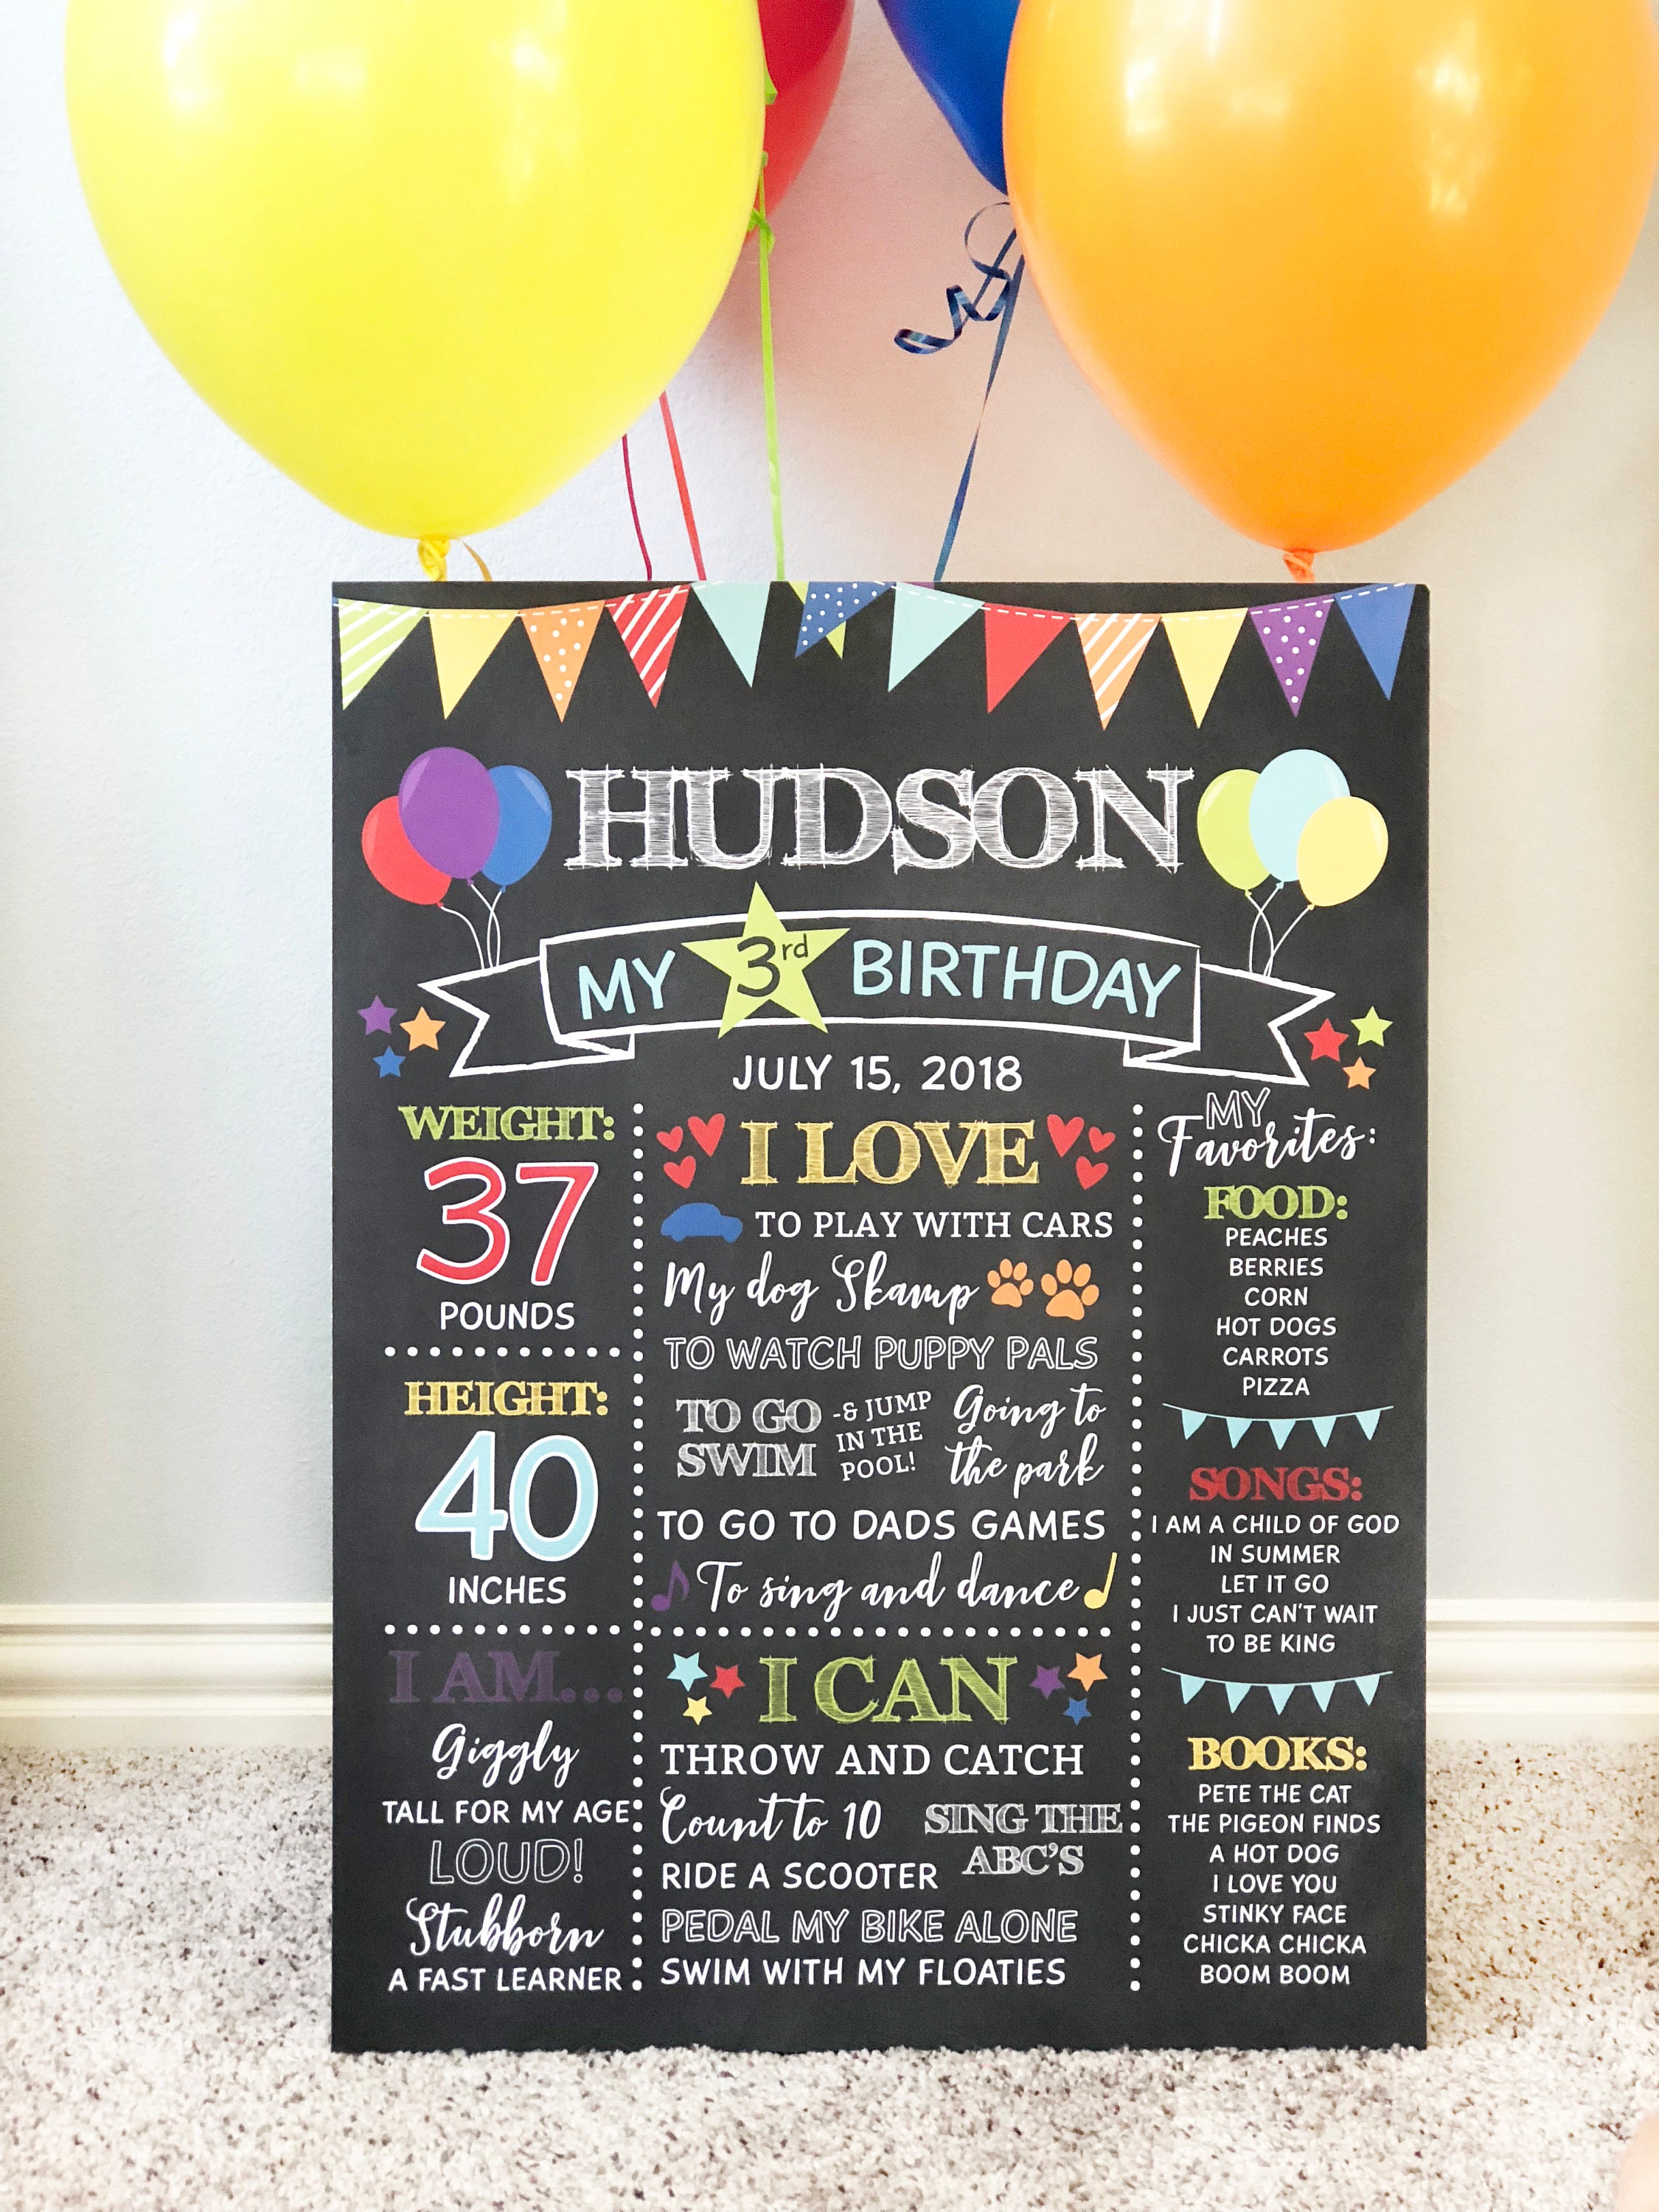 HUDSON
MY 3rd BIRTHDAY
JULY 15, 2018
WEIGHT:
37
POUNDS
HEIGHT:
40
INCHES
I AM...
Giggly
TALL FOR MY AGE
LOUD!
Stubborn
A FAST LEARNER
I LOVE
TO PLAY WITH CARS
My dog Skamp
TO WATCH PUPPY PALS
TO GO
SWIM
-& JUMP
IN THE
POOL!
Going to
the park
TO GO TO DADS GAMES
To sing and dance
I CAN
THROW AND CATCH
Count to 10
SING THE
ABC'S
RIDE A SCOOTER
PEDAL MY BIKE ALONE
SWIM WITH MY FLOATIES
MY
Favorites:
FOOD:
PEACHES
BERRIES
CORN
HOT DOGS
CARROTS
PIZZA
SONGS:
I AM A CHILD OF GOD
IN SUMMER
LET IT GO
I JUST CAN'T WAIT
TO BE KING
BOOKS:
PETE THE CAT
THE PIGEON FINDS
A HOT DOG
I LOVE YOU
STINKY FACE
CHICKA CHICKA
BOOM BOOM